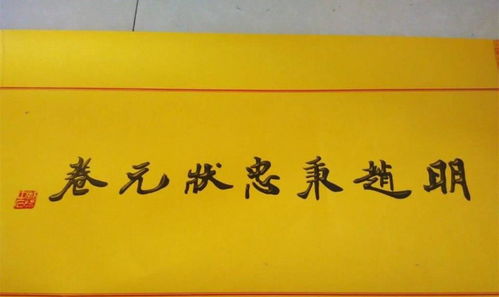 明趙秉忠狀元卷